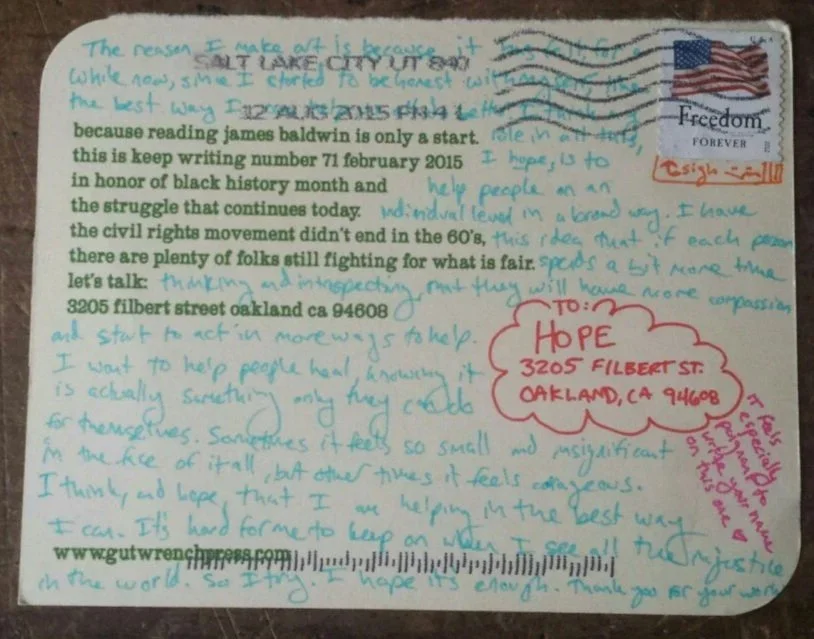 The reason I make art is because it has felt, for a
while now, since I started to be honest with myself, like
the best way I can help I think my
role in all this,
I hope, is to
help people on an
individual level in a broad way. I have
this idea that if each person
spends a bit more time
thinking and introspecting, that they will have more compassion
and start to act in more ways to help.
I want to help people heal, knowing it
is actually something only they can do
for themselves. Sometimes it feels so small and insignificant
in the face of it all, but other times it feels courageous.
I think, and hope, that I am helping in the best way
I can. It's hard for me to keep on when I see all the injustice
in the world. So I try. I hope it's enough. Thank you for your work
SALT LAKE CITY UT 840
12 AUG 2015 PM 4 L
USA
Freedom
FOREVER
*sigh*
because reading james baldwin is only a start.
this is keep writing number 71 february 2015
in honor of black history month and
the struggle that continues today.
the civil rights movement didn't end in the 60's,
there are plenty of folks still fighting for what is fair.
let's talk:
3205 filbert street oakland ca 94608
TO:
HOPE
3205 FILBERT ST.
OAKLAND, CA 94608
it feels
especially
poignant to
write your name
on this one
www.gutwrenchpress.com